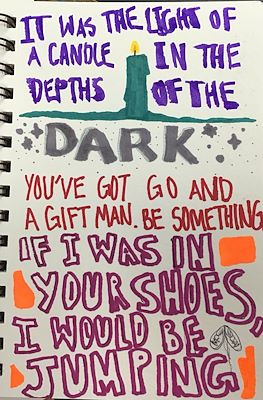 IT WAS THE LIGHT OF
A CANDLE IN THE
DEPTHS OF THE
DARK
YOU'VE GOT GO AND
A GIFT MAN. BE SOMETHING
IF I WAS IN
YOUR SHOES,
I WOULD BE
JUMPING